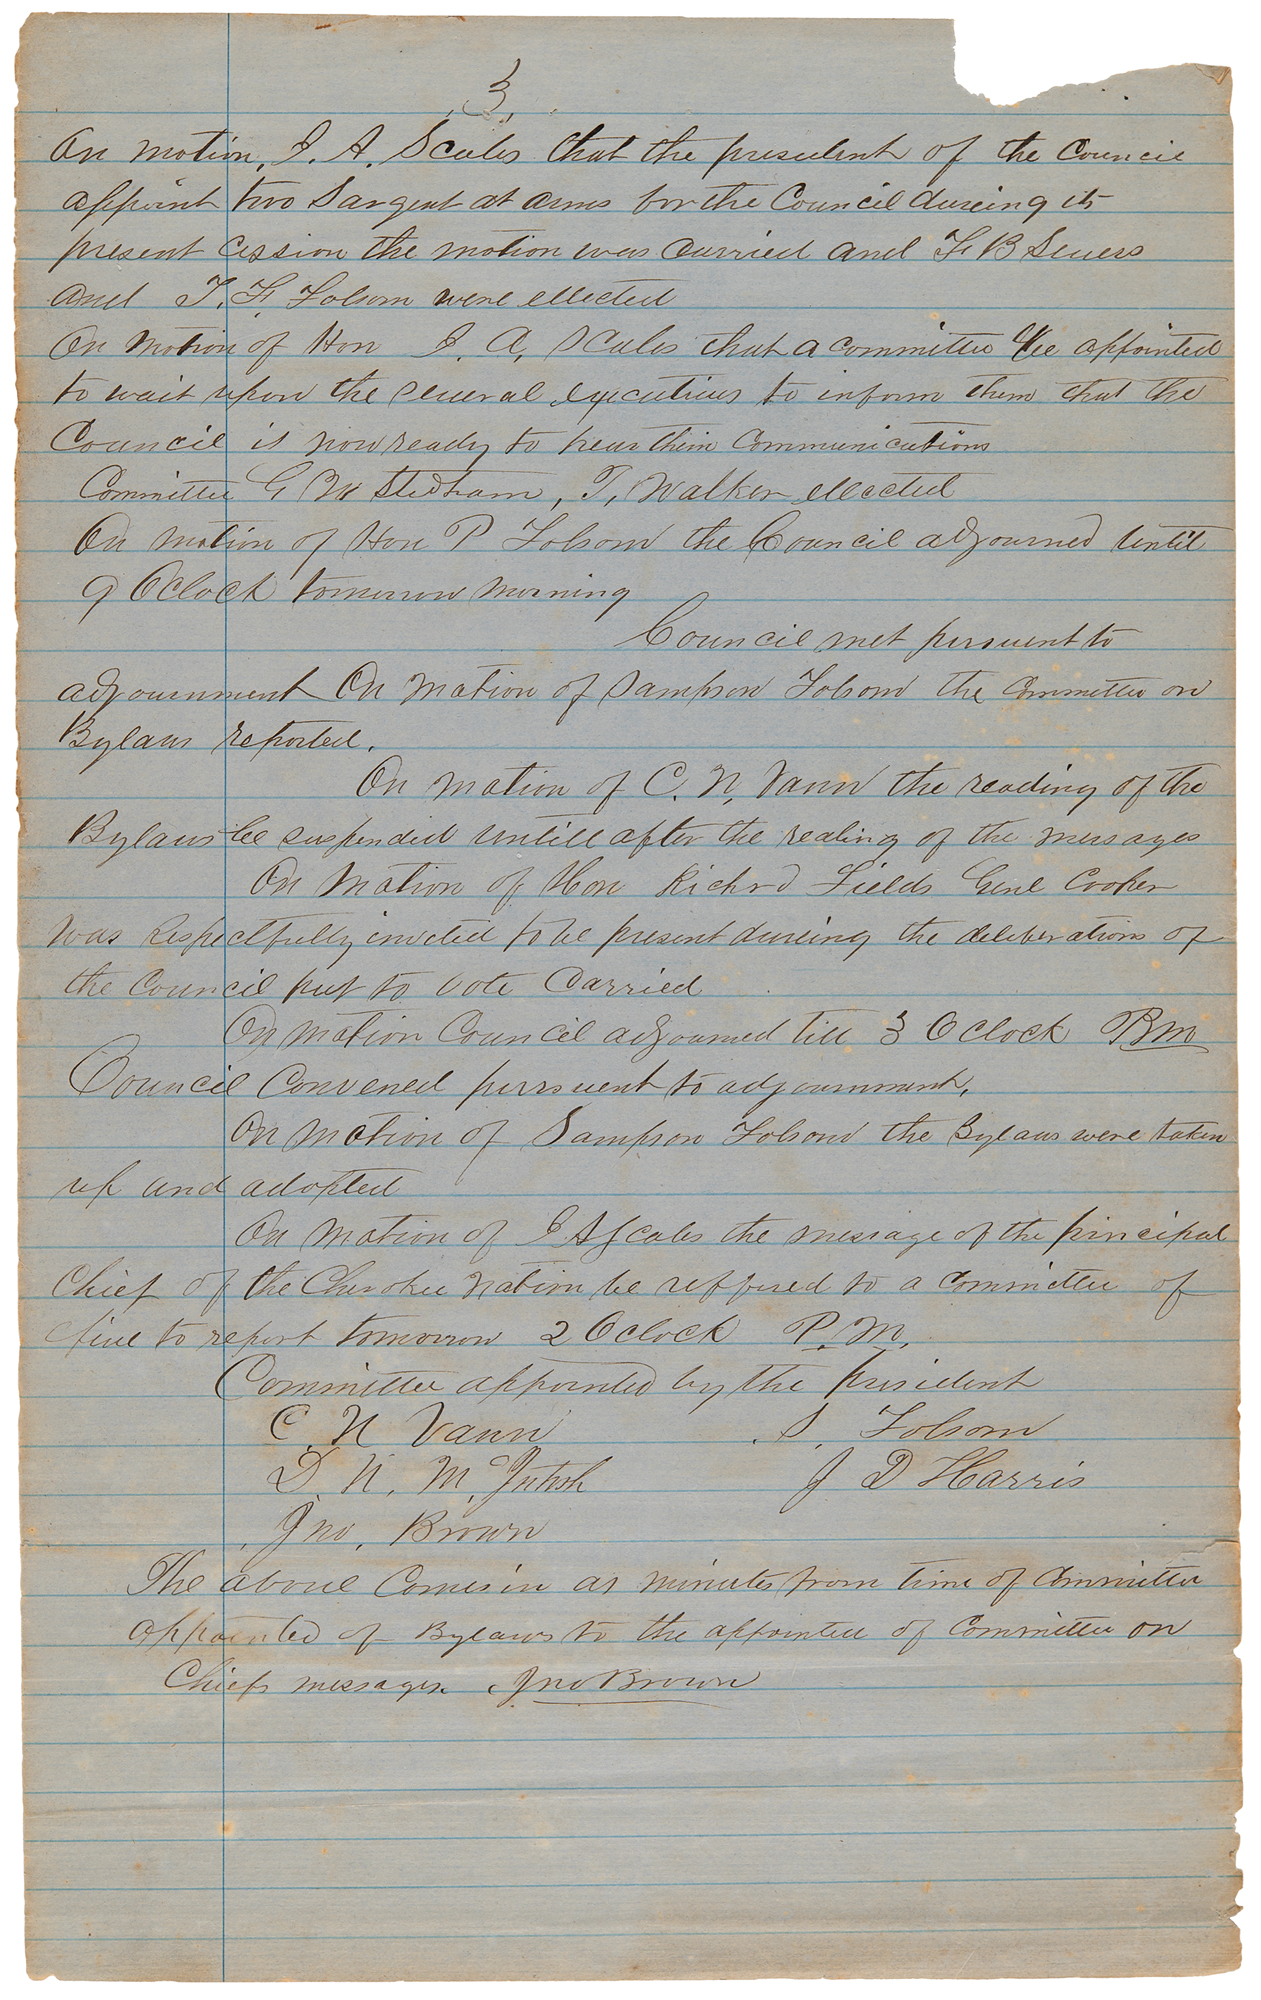 3,
On motion, J. A. Scales that the president of the Council
appoint two Sargent at arms for the Council dureing its
present cession the motion was carried and F B Severs
and T. F. Folsom were ellected
On motion of Hon J. A, Scales that a committee be appointed
to wait upon the several executives to inform them that the
Council is now ready to hear their communications
Committee G W Stidham, T, Walker ellected
On motion of Hon P Folsom the Council adjourned untill
9 Oclock tomorrow morning
Council met persuent to
adjournment On motion of Sampson Folsom the Committee on
Bylaws reported.
On motion of C. N, Vann the reading of the
Bylaws be suspended untill after the reading of the messages
On Motion of Hon Richrd Fields Genl Cooper
was respectfully invited to be present dureing the deliberations of
the Council put to vote Carried
On motion Council adjourned till 3 Oclock P.m
Council Convened persuent to adjournment,
On motion of Sampson Folsom the Bylaws were taken
up and adopted
On motion of J A Scales the message of the principal
Chief of the Cherokee Nation be reffered to a Committee of
five to report tomorrow 2 Oclock P. M.
Committee appointed by the president
C. N Vann S. Folsom
D. N. McIntosh J D Harris
Jno, Brown
The above Comes in as minutes from time of Committee
appointed of Bylaws to the appointee of Committee on
Chiefs messages. Jno Brown